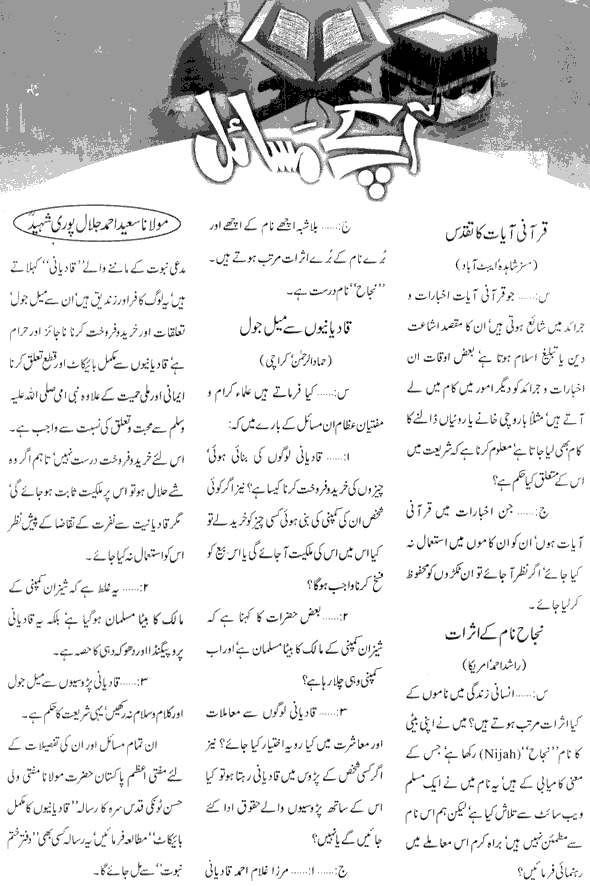 آپ کے مسائل
مولانا سعید احمد جلال پوری شہیدؒ
قرآنی آیات کا تقدس
(مسز شاہدہ، ایبٹ آباد)
س:...... جو قرآنی آیات اخبارات و
جرائد میں شائع ہوتی ہیں، ان کا مقصد اشاعت
دین یا تبلیغ اسلام ہوتا ہے، بعض اوقات ان
اخبارات و جرائد کو دیگر امور میں کام میں لے
آتے ہیں، مثلاً باورچی خانے یا روٹیاں ڈالنے کا
کام بھی لیا جاتا ہے، معلوم کرنا ہے کہ شریعت میں
اس کے متعلق کیا حکم ہے؟
ج:...... جن اخبارات میں قرآنی
آیات ہوں، ان کو ان کاموں میں استعمال نہ
کیا جائے، اگر نظر آ جائے تو ان ٹکڑوں کو محفوظ
کر لیا جائے۔
نجاح نام کے اثرات
(راشد احمد، امریکا)
س:...... انسانی زندگی میں ناموں کے
کیا اثرات مرتب ہوتے ہیں؟ میں نے اپنی بیٹی
کا نام ”نجاح“ (Nijah) رکھا ہے، جس کے
معنی کامیابی کے ہیں، یہ نام میں نے ایک مسلم
ویب سائٹ سے تلاش کیا ہے، لیکن ہم اس نام
سے مطمئن نہیں ہیں، براہ کرم اس معاملے میں
رہنمائی فرمائیں؟
ج:...... بلاشبہ اچھے نام کے اچھے اور
بُرے نام کے بُرے اثرات مرتب ہوتے ہیں۔
”نجاح“ نام درست ہے۔
قادیانیوں سے میل جول
(حماد الرحمٰن، کراچی)
س:...... کیا فرماتے ہیں علماء کرام و
مفتیان عظام ان مسائل کے بارے میں کہ:
۱:...... قادیانی لوگوں کی بنائی ہوئی
چیزوں کی خرید و فروخت کرنا کیسا ہے؟ نیز اگر کوئی
شخص ان کی کمپنی کی بنی ہوئی کسی چیز کو خرید لے تو
کیا اس میں اس کی ملکیت آ جائے گی یا اس بیع کو
فسخ کرنا واجب ہوگا؟
۲:...... بعض حضرات کا کہنا ہے کہ
شیزان کمپنی کے مالک کا بیٹا مسلمان ہے، اور اب
کمپنی وہی چلا رہا ہے؟
۳:...... قادیانی لوگوں سے معاملات
اور معاشرت میں کیا رویہ اختیار کیا جائے؟ نیز
اگر کسی شخص کے پڑوس میں قادیانی رہتا ہو تو کیا
اس کے ساتھ پڑوسیوں والے حقوق ادا کئے
جائیں گے یا نہیں؟
ج:...... ۱:...... مرزا غلام احمد قادیانی
مدعی نبوت کے ماننے والے ”قادیانی“ کہلاتے
ہیں، یہ لوگ کافر اور زندیق ہیں، ان سے میل جول،
تعلقات اور خرید و فروخت کرنا ناجائز اور حرام
ہے، قادیانیوں سے مکمل بائیکاٹ اور قطع تعلق کرنا
ایمانی اور ملی حمیت کے علاوہ نبی امی صلی اللہ علیہ
وسلم سے محبت و تعلق کی نسبت سے واجب ہے۔
اس لئے خرید و فروخت درست نہیں، تاہم اگر وہ
شے حلال ہو تو اس پر ملکیت ثابت ہو جائے گی،
مگر قادیانیت سے نفرت کے تقاضا کے پیش نظر
اس کو استعمال نہ کیا جائے۔
۲:...... یہ غلط ہے کہ شیزان کمپنی کے
مالک کا بیٹا مسلمان ہو گیا ہے، بلکہ یہ قادیانی
پروپیگنڈا اور دھوکہ دہی کا حصہ ہے۔
۳:...... قادیانی پڑوسیوں سے میل جول
اور کلام و سلام نہ رکھیں، یہی شریعت کا حکم ہے۔
ان تمام مسائل اور ان کی تفصیلات کے
لئے مفتی اعظم پاکستان حضرت مولانا مفتی ولی
حسن ٹونکی قدس سرہ کا رسالہ ”قادیانیوں کا مکمل
بائیکاٹ“ مطالعہ فرمائیں، یہ رسالہ کسی بھی ”دفتر ختم
نبوت“ سے مل جائے گا۔